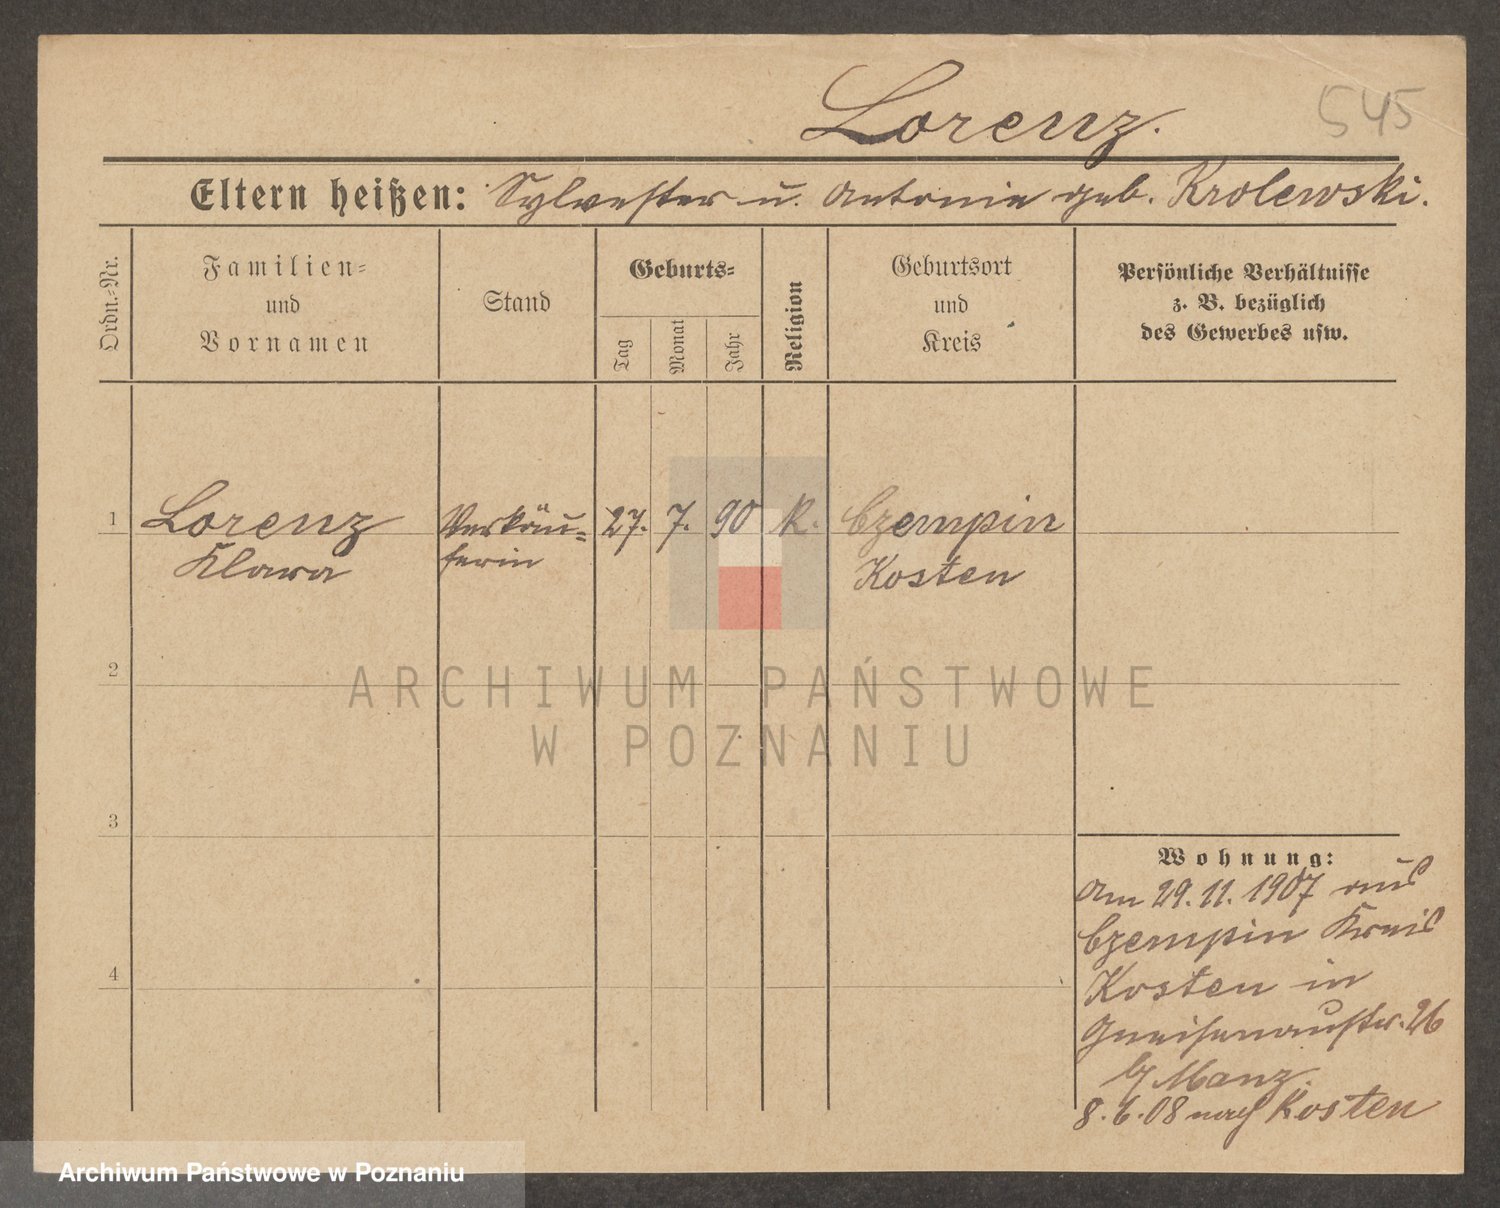 Lorenz.
545
Eltern heißen: Sylvester u. Antonie geb. Krolewski.
Ordn.-Nr.
Familien-
und
Vornamen
Stand
Geburts-
Tag
Monat
Jahr
Religion
Geburtsort
und
Kreis
Persönliche Verhältnisse
z. B. bezüglich
des Gewerbes usw.
1
Lorenz
Klara
Verkäu-
ferin
27.
7.
90
K.
Czempin
Kosten
2
3
4
Wohnung:
Am 29.11.1907 aus
Czempin Kreis
Kosten in
Gneisenaustr. 26
b/ Manz.
8.6.08 nach Kosten
ARCHIWUM PAŃSTWOWE
W POZNANIU
Archiwum Państwowe w Poznaniu